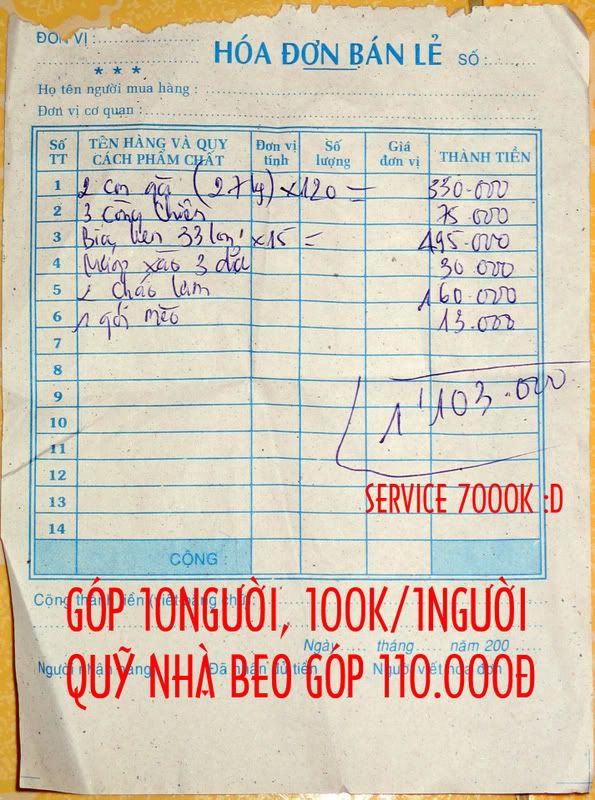 ĐƠN VỊ :
HÓA ĐƠN BÁN LẺ SỐ :
* * *
Họ tên người mua hàng :
Đơn vị cơ quan :
Số TT TÊN HÀNG VÀ QUY CÁCH PHẨM CHẤT Đơn vị tính Số lượng Giá đơn vị THÀNH TIỀN
1 2 con gà (2,7 kg) x 120 = 330.000
2 3 75.000
3 Bia 33 lon x 15 = 495.000
4 xào 30.000
5 1 cháo 160.000
6 1 gói mèo 13.000
7
8
9
10
11
12
13
14
1'103.000
SERVICE 7000K :D
CỘNG :
GÓP 10NGƯỜI, 100K/1NGƯỜI
Ngày tháng năm 200
QUỸ NHÀ BEO GÓP 110.000Đ